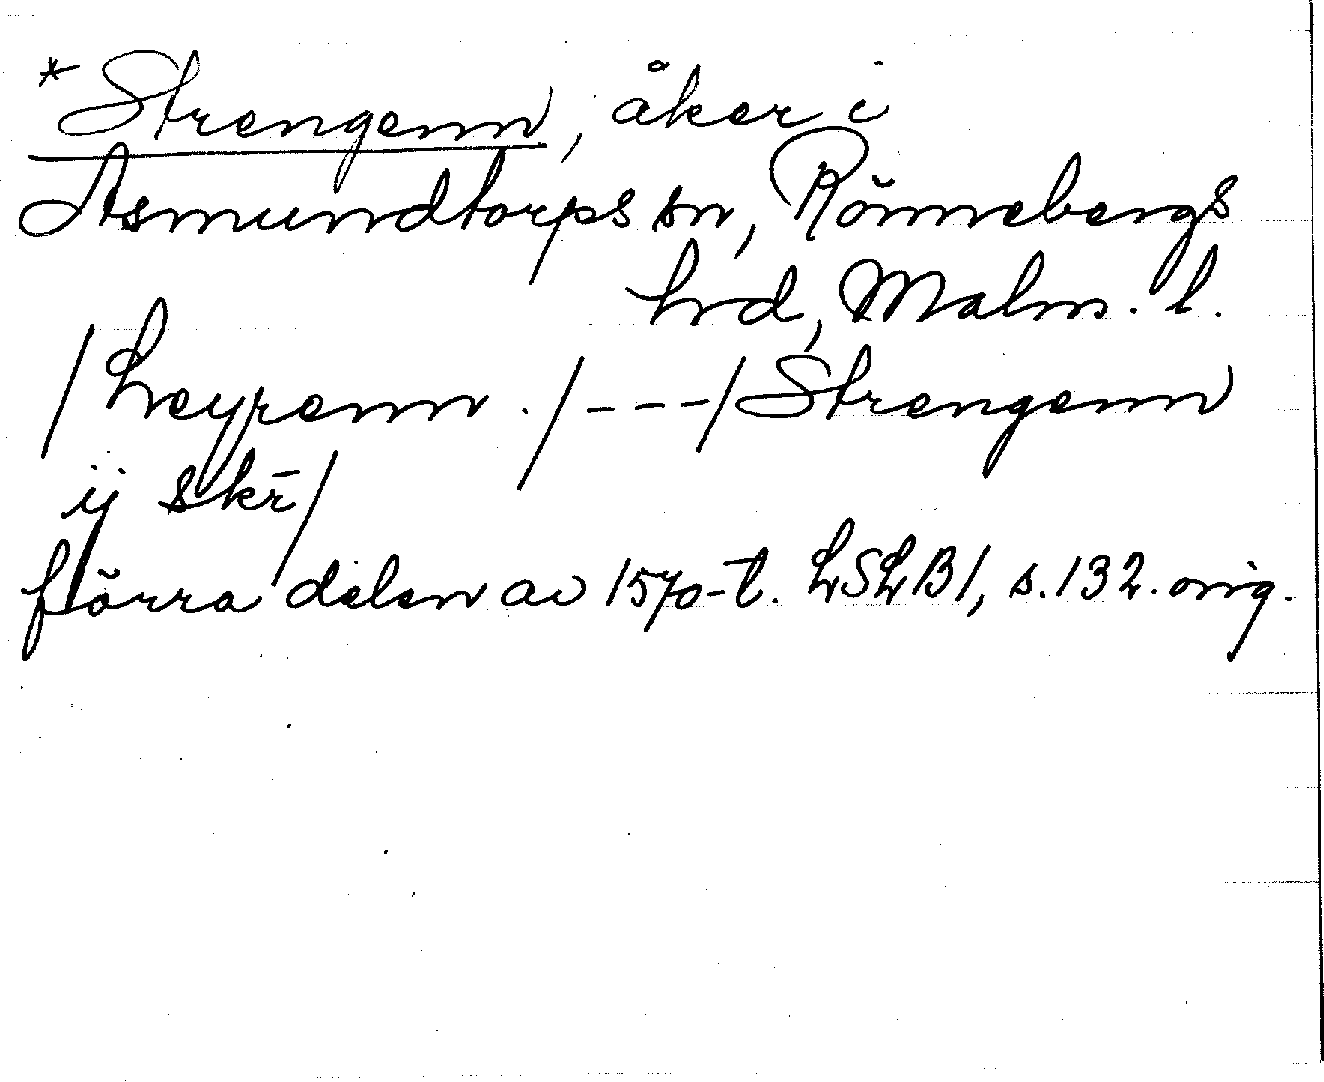 *Strengenn, åker i
Asmundtorps sn, Rönnebergs
hrd, Malm. l.
/ heyrenn . / - - - / Strengenn
ij skr̄ /
förra delen av 1570-t. LSLB1, s. 132. orig.